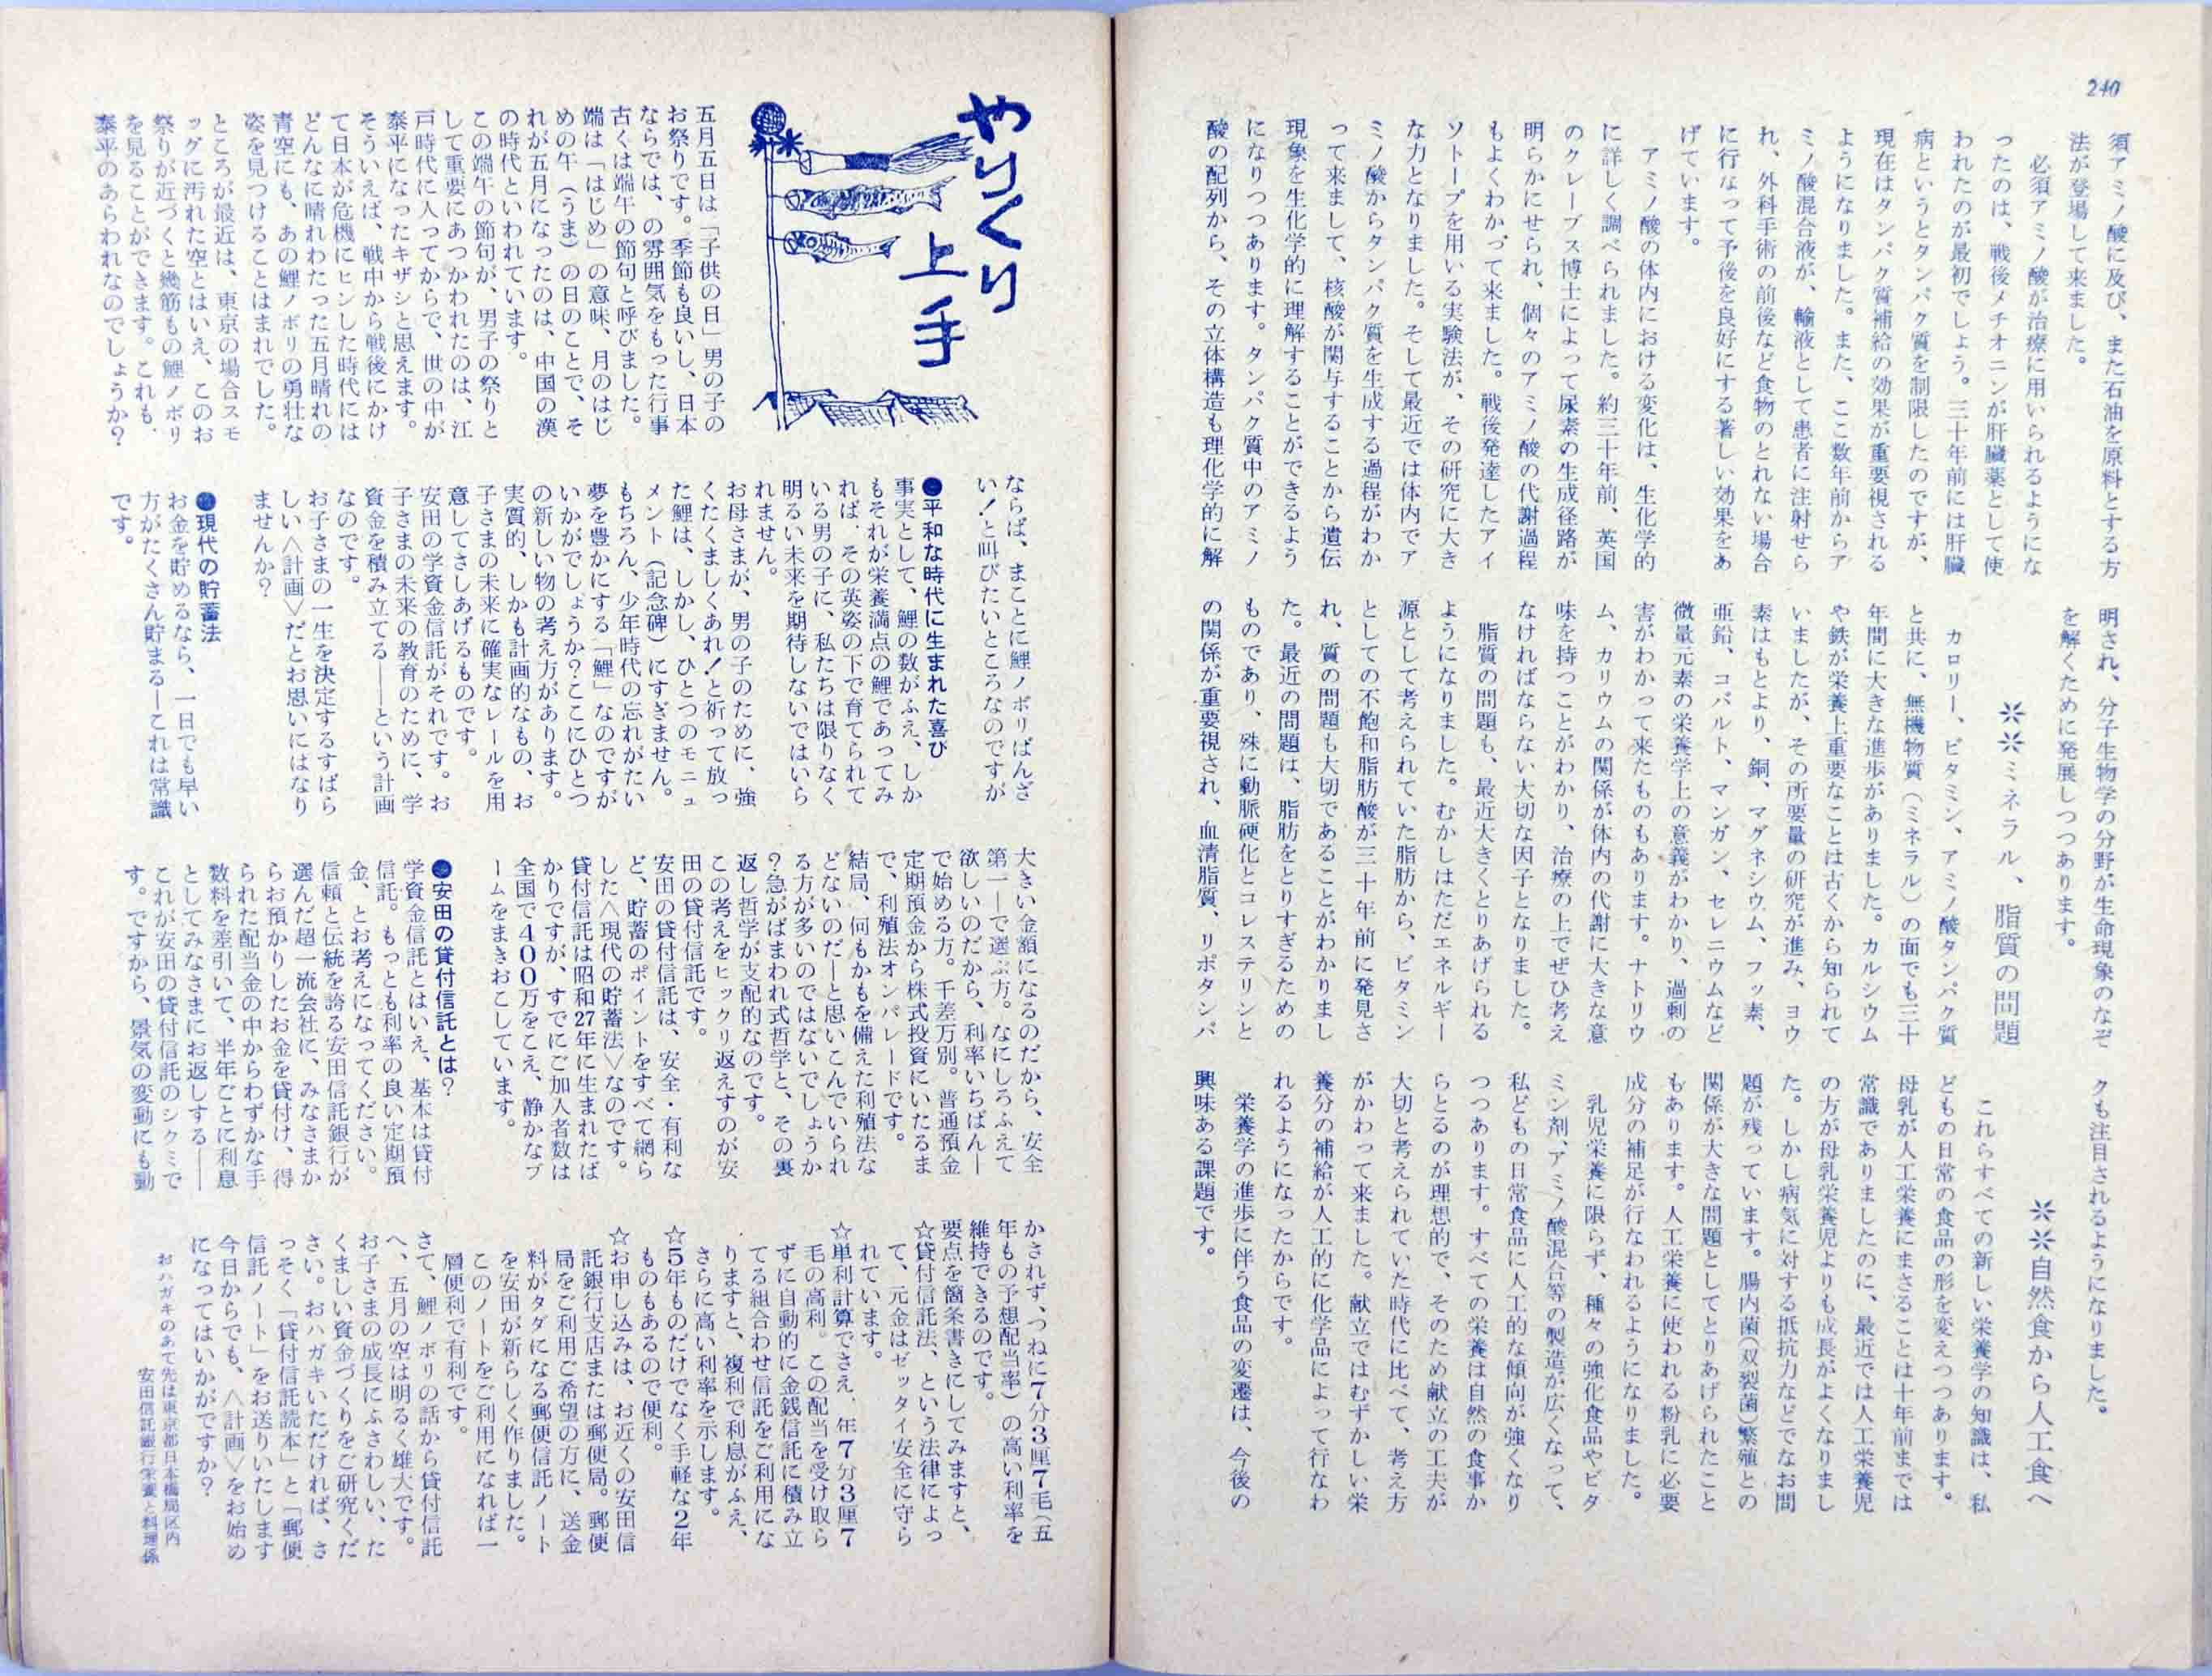 240
須アミノ酸に及び、また石油を原料とする方
法が登場して来ました。
必須アミノ酸が治療に用いられるようにな
ったのは、戦後メチオニンが肝臓薬として使
われたのが最初でしょう。三十年前には肝臓
病というとタンパク質を制限したのですが、
現在はタンパク質補給の効果が重要視される
ようになりました。また、ここ数年前からア
ミノ酸混合液が、輸液として患者に注射せら
れ、外科手術の前後など食物のとれない場合
に行なって予後を良好にする著しい効果をあ
げています。
アミノ酸の体内における変化は、生化学的
に詳しく調べられました。約三十年前、英国
のクレーブス博士によって尿素の生成径路が
明らかにせられ、個々のアミノ酸の代謝過程
もよくわかって来ました。戦後発達したアイ
ソトープを用いる実験法が、その研究に大き
な力となりました。そして最近では体内でア
ミノ酸からタンパク質を生成する過程がわか
って来まして、核酸が関与することから遺伝
現象を生化学的に理解することができるよう
になりつつあります。タンパク質中のアミノ
酸の配列から、その立体構造も理化学的に解
明され、分子生物学の分野が生命現象のなぞ
を解くために発展しつつあります。
※※ミネラル、脂質の問題
カロリー、ビタミン、アミノ酸タンパク質
と共に、無機物質(ミネラル)の面でも三十
年間に大きな進歩がありました。カルシウム
や鉄が栄養上重要なことは古くから知られて
いましたが、その所要量の研究が進み、ヨウ
素はもとより、銅、マグネシウム、フッ素、
亜鉛、コバルト、マンガン、セレニウムなど
微量元素の栄養学上の意義がわかり、過剰の
害がわかって来たものもあります。ナトリウ
ム、カリウムの関係が体内の代謝に大きな意
味を持つことがわかり、治療の上でぜひ考え
なければならない大切な因子となりました。
脂質の問題も、最近大きくとりあげられる
ようになりました。むかしはただエネルギー
源として考えられていた脂肪から、ビタミン
としての不飽和脂肪酸が三十年前に発見さ
れ、質の問題も大切であることがわかりまし
た。最近の問題は、脂肪をとりすぎるための
ものであり、殊に動脈硬化とコレステリンと
の関係が重要視され、血清脂質、リポタンパ
クも注目されるようになりました。
※※自然食から人工食へ
これらすべての新しい栄養学の知識は、私
どもの日常の食品の形を変えつつあります。
母乳が人工栄養にまさることは十年前までは
常識でありましたのに、最近では人工栄養児
の方が母乳栄養児よりも成長がよくなりまし
た。しかし病気に対する抵抗力などでなお問
題が残っています。腸内菌(双裂菌)繁殖との
関係が大きな問題としてとりあげられたこと
もあります。人工栄養に使われる粉乳に必要
成分の補足が行なわれるようになりました。
乳児栄養に限らず、種々の強化食品やビタ
ミン剤、アミノ酸混合等の製造が広くなって、
私どもの日常食品に人工的な傾向が強くなり
つつあります。すべての栄養は自然の食事か
らとるのが理想的で、そのため献立の工夫が
大切と考えられていた時代に比べて、考え方
がかわって来ました。献立ではむずかしい栄
養分の補給が人工的に化学品によって行なわ
れるようになったからです。
栄養学の進歩に伴う食品の変遷は、今後の
興味ある課題です。
やりくり
上手
五月五日は「子供の日」男の子の
お祭りです。季節も良いし、日本
ならでは、の雰囲気をもった行事
古くは端午の節句と呼びました。
端は「はじめ」の意味、月のはじ
めの午(うま)の日のことで、そ
れが五月になったのは、中国の漢
の時代といわれています。
この端午の節句が、男子の祭りと
して重要にあつかわれたのは、江
戸時代に入ってからで、世の中が
泰平になったキザシと思えます。
そういえば、戦中から戦後にかけ
て日本が危機にヒンした時代には
どんなに晴れわたった五月晴れの
青空にも、あの鯉ノボリの勇壮な
姿を見つけることはまれでした。
ところが最近は、東京の場合スモ
ッグに汚れた空とはいえ、このお
祭りが近づくと幾筋もの鯉ノボリ
を見ることができます。これも、
泰平のあらわれなのでしょうか?
ならば、まことに鯉ノボリばんざ
い!と叫びたいところなのですが
●平和な時代に生まれた喜び
事実として、鯉の数がふえ、しか
もそれが栄養満点の鯉であってみ
れば、その英姿の下で育てられて
いる男の子に、私たちは限りなく
明るい未来を期待しないではいら
れません。
お母さまが、男の子のために、強
くたくましくあれ!と祈って放っ
た鯉は、しかし、ひとつのモニュ
メント(記念碑)にすぎません。
もちろん、少年時代の忘れがたい
夢を豊かにする「鯉」なのですが
いかがでしょうか?ここにひとつ
の新しい物の考え方があります。
実質的、しかも計画的なもの、お
子さまの未来に確実なレールを用
意してさしあげるものです。
安田の学資金信託がそれです。お
子さまの未来の教育のために、学
資金を積み立てる——という計画
なのです。
お子さまの一生を決定するすばら
しい<計画>だとお思いにはなり
ませんか?
●現代の貯蓄法
お金を貯めるなら、一日でも早い
方がたくさん貯まる—これは常識
です。
大きい金額になるのだから、安全
第一—で選ぶ方。なにしろふえて
欲しいのだから、利率いちばん—
で始める方。千差万別。普通預金
定期預金から株式投資にいたるま
で、利殖法オンパレードです。
結局、何もかもを備えた利殖法な
どないのだ—と思いこんでいられ
る方が多いのではないでしょうか
?急がばまわれ式哲学と、その裏
返し哲学が支配的なのです。
この考えをヒックリ返えすのが安
田の貸付信託です。
安田の貸付信託は、安全・有利な
ど、貯蓄のポイントをすべて網ら
した<現代の貯蓄法>なのです。
貸付信託は昭和27年に生まれたば
かりですが、すでにご加入者数は
全国で400万をこえ、静かなブ
ームをまきおこしています。
●安田の貸付信託とは?
学資金信託とはいえ、基本は貸付
信託。もっとも利率の良い定期預
金、とお考えになってください。
信頼と伝統を誇る安田信託銀行が
選んだ超一流会社に、みなさまか
らお預かりしたお金を貸付け、得
られた配当金の中からわずかな手
数料を差引いて、半年ごとに利息
としてみなさまにお返しする——
これが安田の貸付信託のシクミで
す。ですから、景気の変動にも動
かされず、つねに7分3厘7毛(五
年もの予想配当率)の高い利率を
維持できるのです。
要点を箇条書きにしてみますと、
☆貸付信託法、という法律によっ
て、元金はゼッタイ安全に守ら
れています。
☆単利計算でさえ、年7分3厘7
毛の高利。この配当を受け取ら
ずに自動的に金銭信託に積み立
てる組合わせ信託をご利用にな
りますと、複利で利息がふえ、
さらに高い利率を示します。
☆5年ものだけでなく手軽な2年
ものもあるので便利。
☆お申し込みは、お近くの安田信
託銀行支店または郵便局。郵便
局をご利用ご希望の方に、送金
料がタダになる郵便信託ノート
を安田が新らしく作りました。
このノートをご利用になれば一
層便利で有利です。
さて、鯉ノボリの話から貸付信託
へ、五月の空は明るく雄大です。
お子さまの成長にふさわしい、た
くましい資金づくりをご研究くだ
さい。おハガキいただければ、さ
っそく「貸付信託読本」と「郵便
信託ノート」をお送りいたします
今日からでも、<計画>をお始め
になってはいかがですか?
おハガキのあて先は東京都日本橋局区内
安田信託銀行栄養と料理係